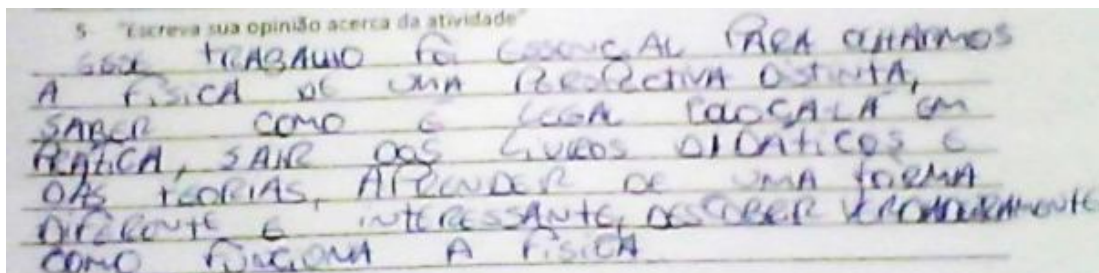 5- "Escreva sua opinião acerca da atividade"
ESSE TRABALHO FOI ESSENCIAL PARA OLHARMOS
A FÍSICA DE UMA PERSPECTIVA DISTINTA,
SABER COMO É LEGAL COLOCA-LÁ EM
PRATICA, SAIR DOS LIVROS DIDATICOS E
DAS TEORIAS, APRENDER DE UMA FORMA
DIFERENTE E INTERESSANTE, DESCOBRIR VERDADEIRAMENTE
COMO FUNCIONA A FÍSICA